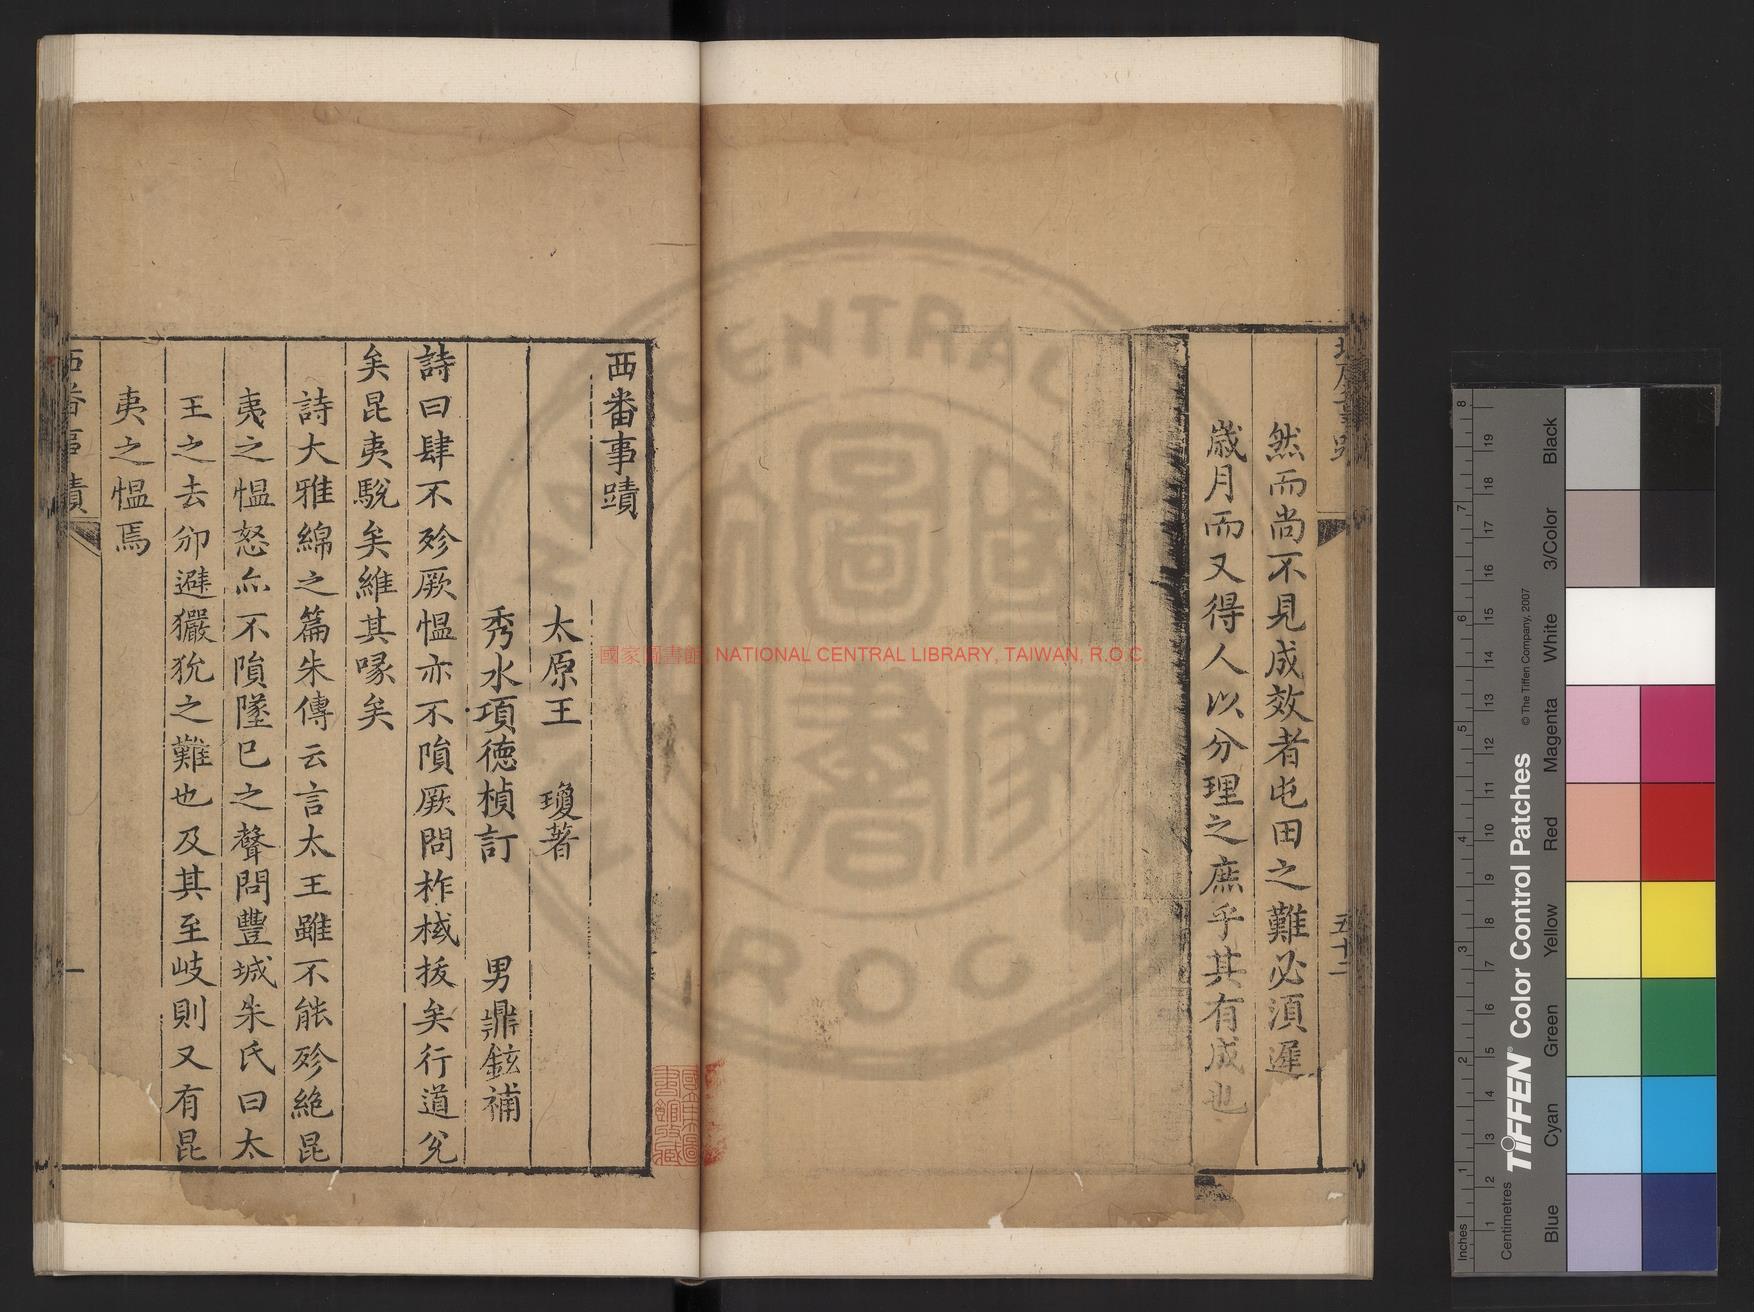 然而尚不見成效者屯田之難必須遲
歲月而又得人以分理之庶乎其有成也
五十二
西番事蹟
太原王　瓊著
秀水項德楨訂　男鼎鉉補
詩曰肆不殄厥慍亦不隕厥問柞棫拔矣行道兌
矣昆夷駾矣維其喙矣
詩大雅綿之篇朱傳云言太王雖不能殄絶昆
夷之慍怒亦不隕墜已之聲問豐城朱氏曰太
王之去邠避玁狁之難也及其至岐則又有昆
夷之慍焉
西番事蹟
一
國家圖書館 NATIONAL CENTRAL LIBRARY, TAIWAN, R.O.C.
TIFFEN® Color Control Patches
© The Tiffen Company, 2007
Inches
Centimetres
Blue
Cyan
Green
Yellow
Red
Magenta
White
3/Color
Black